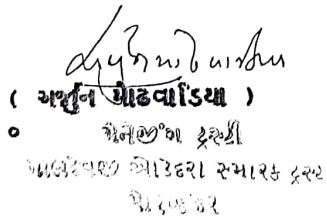 ( અર્જુન મોઢવાડિયા )
મેનેજીંગ ટ્રસ્ટી
માલદેવજી ઓડેદરા સ્મારક ટ્રસ્ટ
પોરબંદર